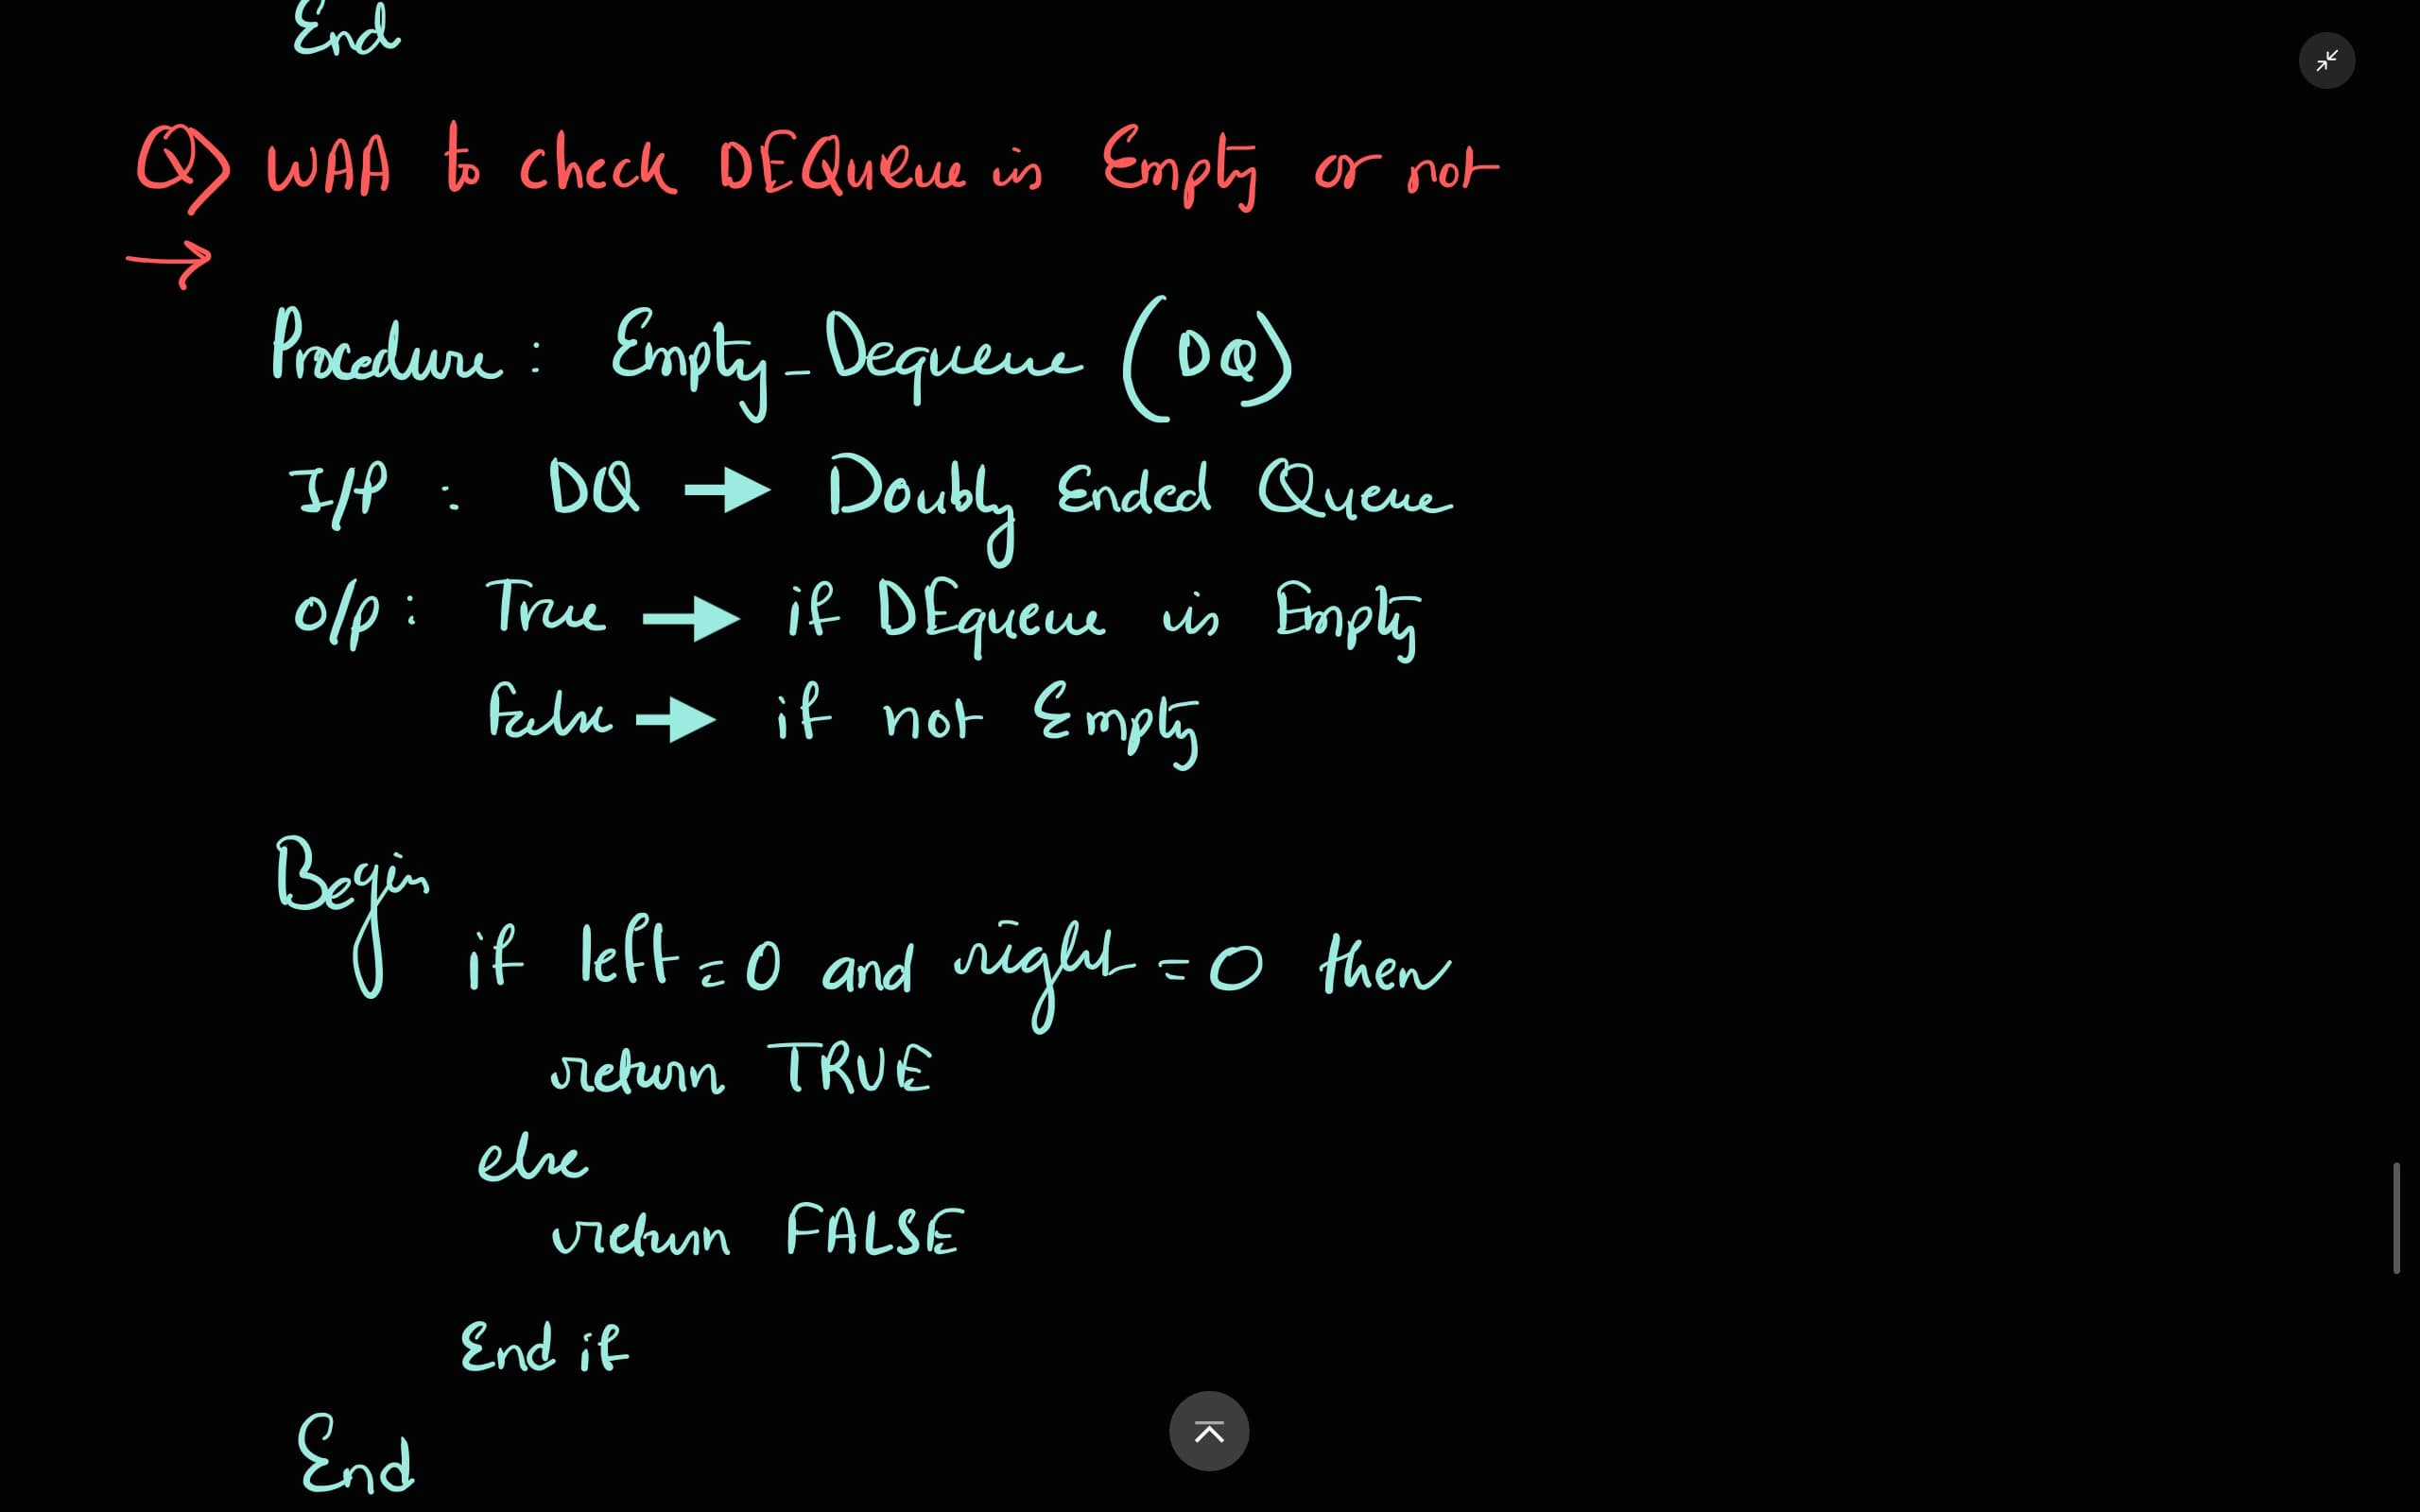 End
Q) WAA to check DEQueue is Empty or not
→
Procedure : Empty_Dequeue (DQ)
I/P : DQ → Doubly Ended Queue
O/p : True → if DEqueue is Empty
False → if not Empty
Begin
if left = 0 and right = 0 then
return TRUE
else
return FALSE
End if
End